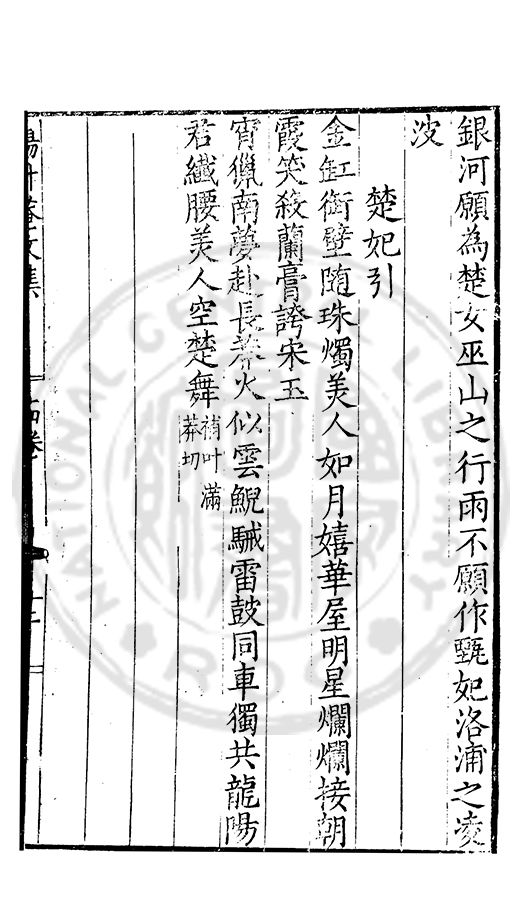 銀河願為楚女巫山之行雨不願作甄妃洛浦之凌
波
楚妃引
金缸銜璧随珠燭美人如月嬉華屋明星爛爛接朝
霞笑殺蘭膏誇宋玉
宵獵南夢赴長莽火似雲鯢駴雷鼓同車獨共龍陽
君纖腰美人空楚舞
補叶滿
莽切
NATIONAL CENTRAL LIBRARY